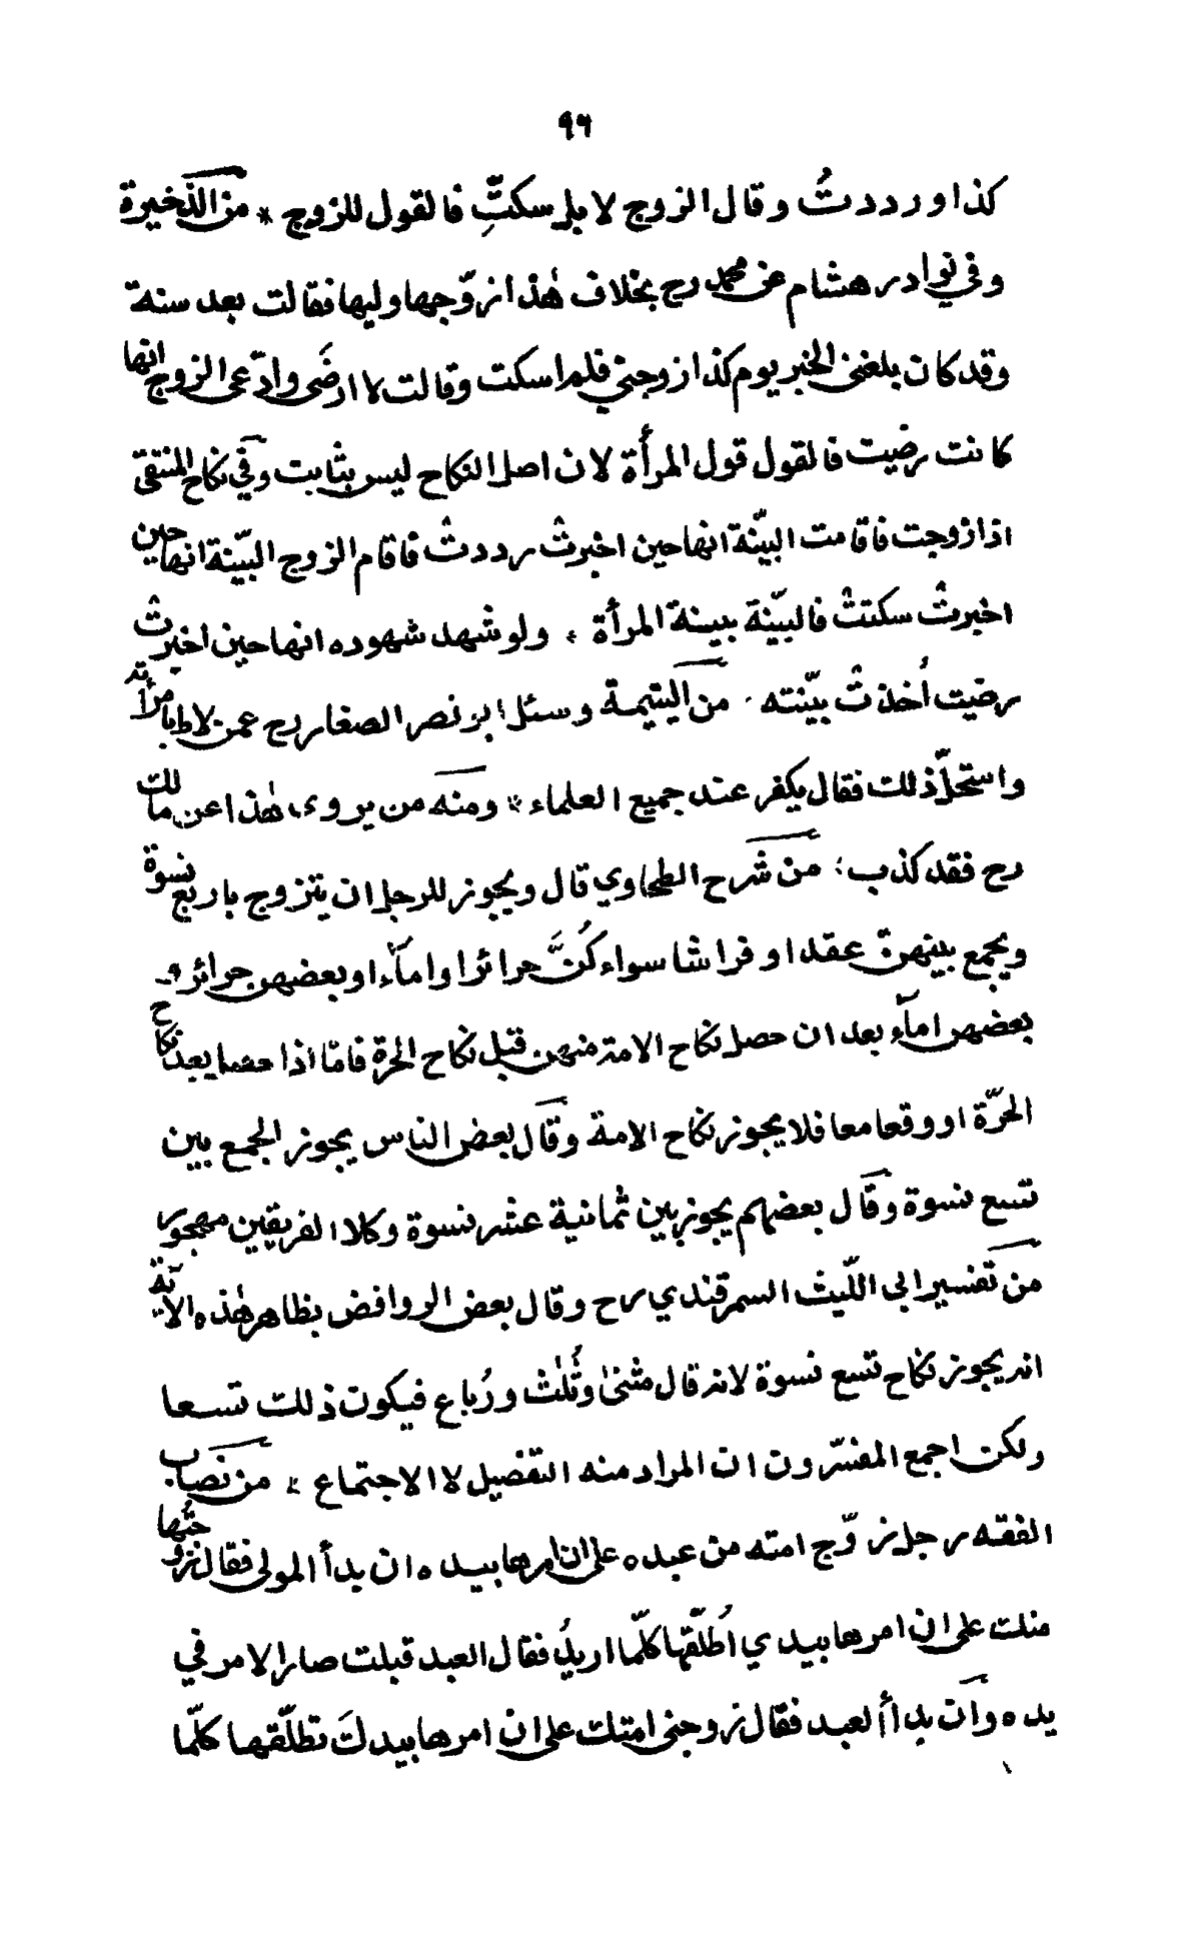 ٩٦
كذا ورددتُ وقال الزوج لا بل سكتِّ فالقول للزوج * من الذّخيرة
وفي نوادر هشام عن محمد رح بخلاف هٰذا زوّجها وليها فقالت بعد سنة
وقد كان بلغني الخبر يوم كذا زوجني فلم اسكت وقالت لا ارضَى وادّعى الزوج انها
كانت رضيت فالقول قول المرأة لان اصل النكاح ليس بثابت وفي نكاح المنتقى
اذا زوجت فاقامت البيّنة انها حين اخبرتْ رددتْ فاقام الزوج البيّنة انها حين
اخبرتْ سكتتْ فالبيّنة بينة المرأة ؞ ولو شهد شهوده انها حين اخبرتْ
رضيت اُخذتْ بيّنته ٠ من اليتيمة وسئل ابو نصر الصفار رح عمن لاط بامرأته
واستحلّ ذلك فقال يكفر عند جميع العلماء * ومنه من يروى هٰذا عن مالك
رح فقد كذب ؛ من شرح الطحاوي قال ويجوز للرجل ان يتزوج باربع نسوة
ويجمع بينهن عقدا او فراشا سواء كُنَّ حرائرا واماءً او بعضهن حرائر و
بعضهن اماء بعد ان حصل نكاح الامة منهن قبل نكاح الحرة فامّا اذا حصل بعد نكاح
الحرّة او وقعا معا فلا يجوز نكاح الامة وقال بعض الناس يجوز الجمع بين
تسع نسوة وقال بعضهم يجوز بين ثمانية عشر نسوة وكلا الفريقين مهجور
من تفسير ابى اللّيث السمرقندي رح وقال بعض الروافض بظاهر هٰذه الآية
انه يجوز نكاح تسع نسوة لانه قال مثنىٰ وثُلٰث ورُباع فيكون ذلك تسعا
ولكن اجمع المفسّرون ان المراد منه التفصيل لا الاجتماع * من نصاب
الفقه رجل زوّج امته من عبده على ان امرها بيده ان بدأ المولى فقال زوجتُها
منك على ان امرها بيدي اُطلّقها كلّما اريدُ فقال العبد قبلت صار الامر في
يده وان بدأ العبد فقال زوجنى امتك على ان امرها بيدكَ تطلّقها كلّما